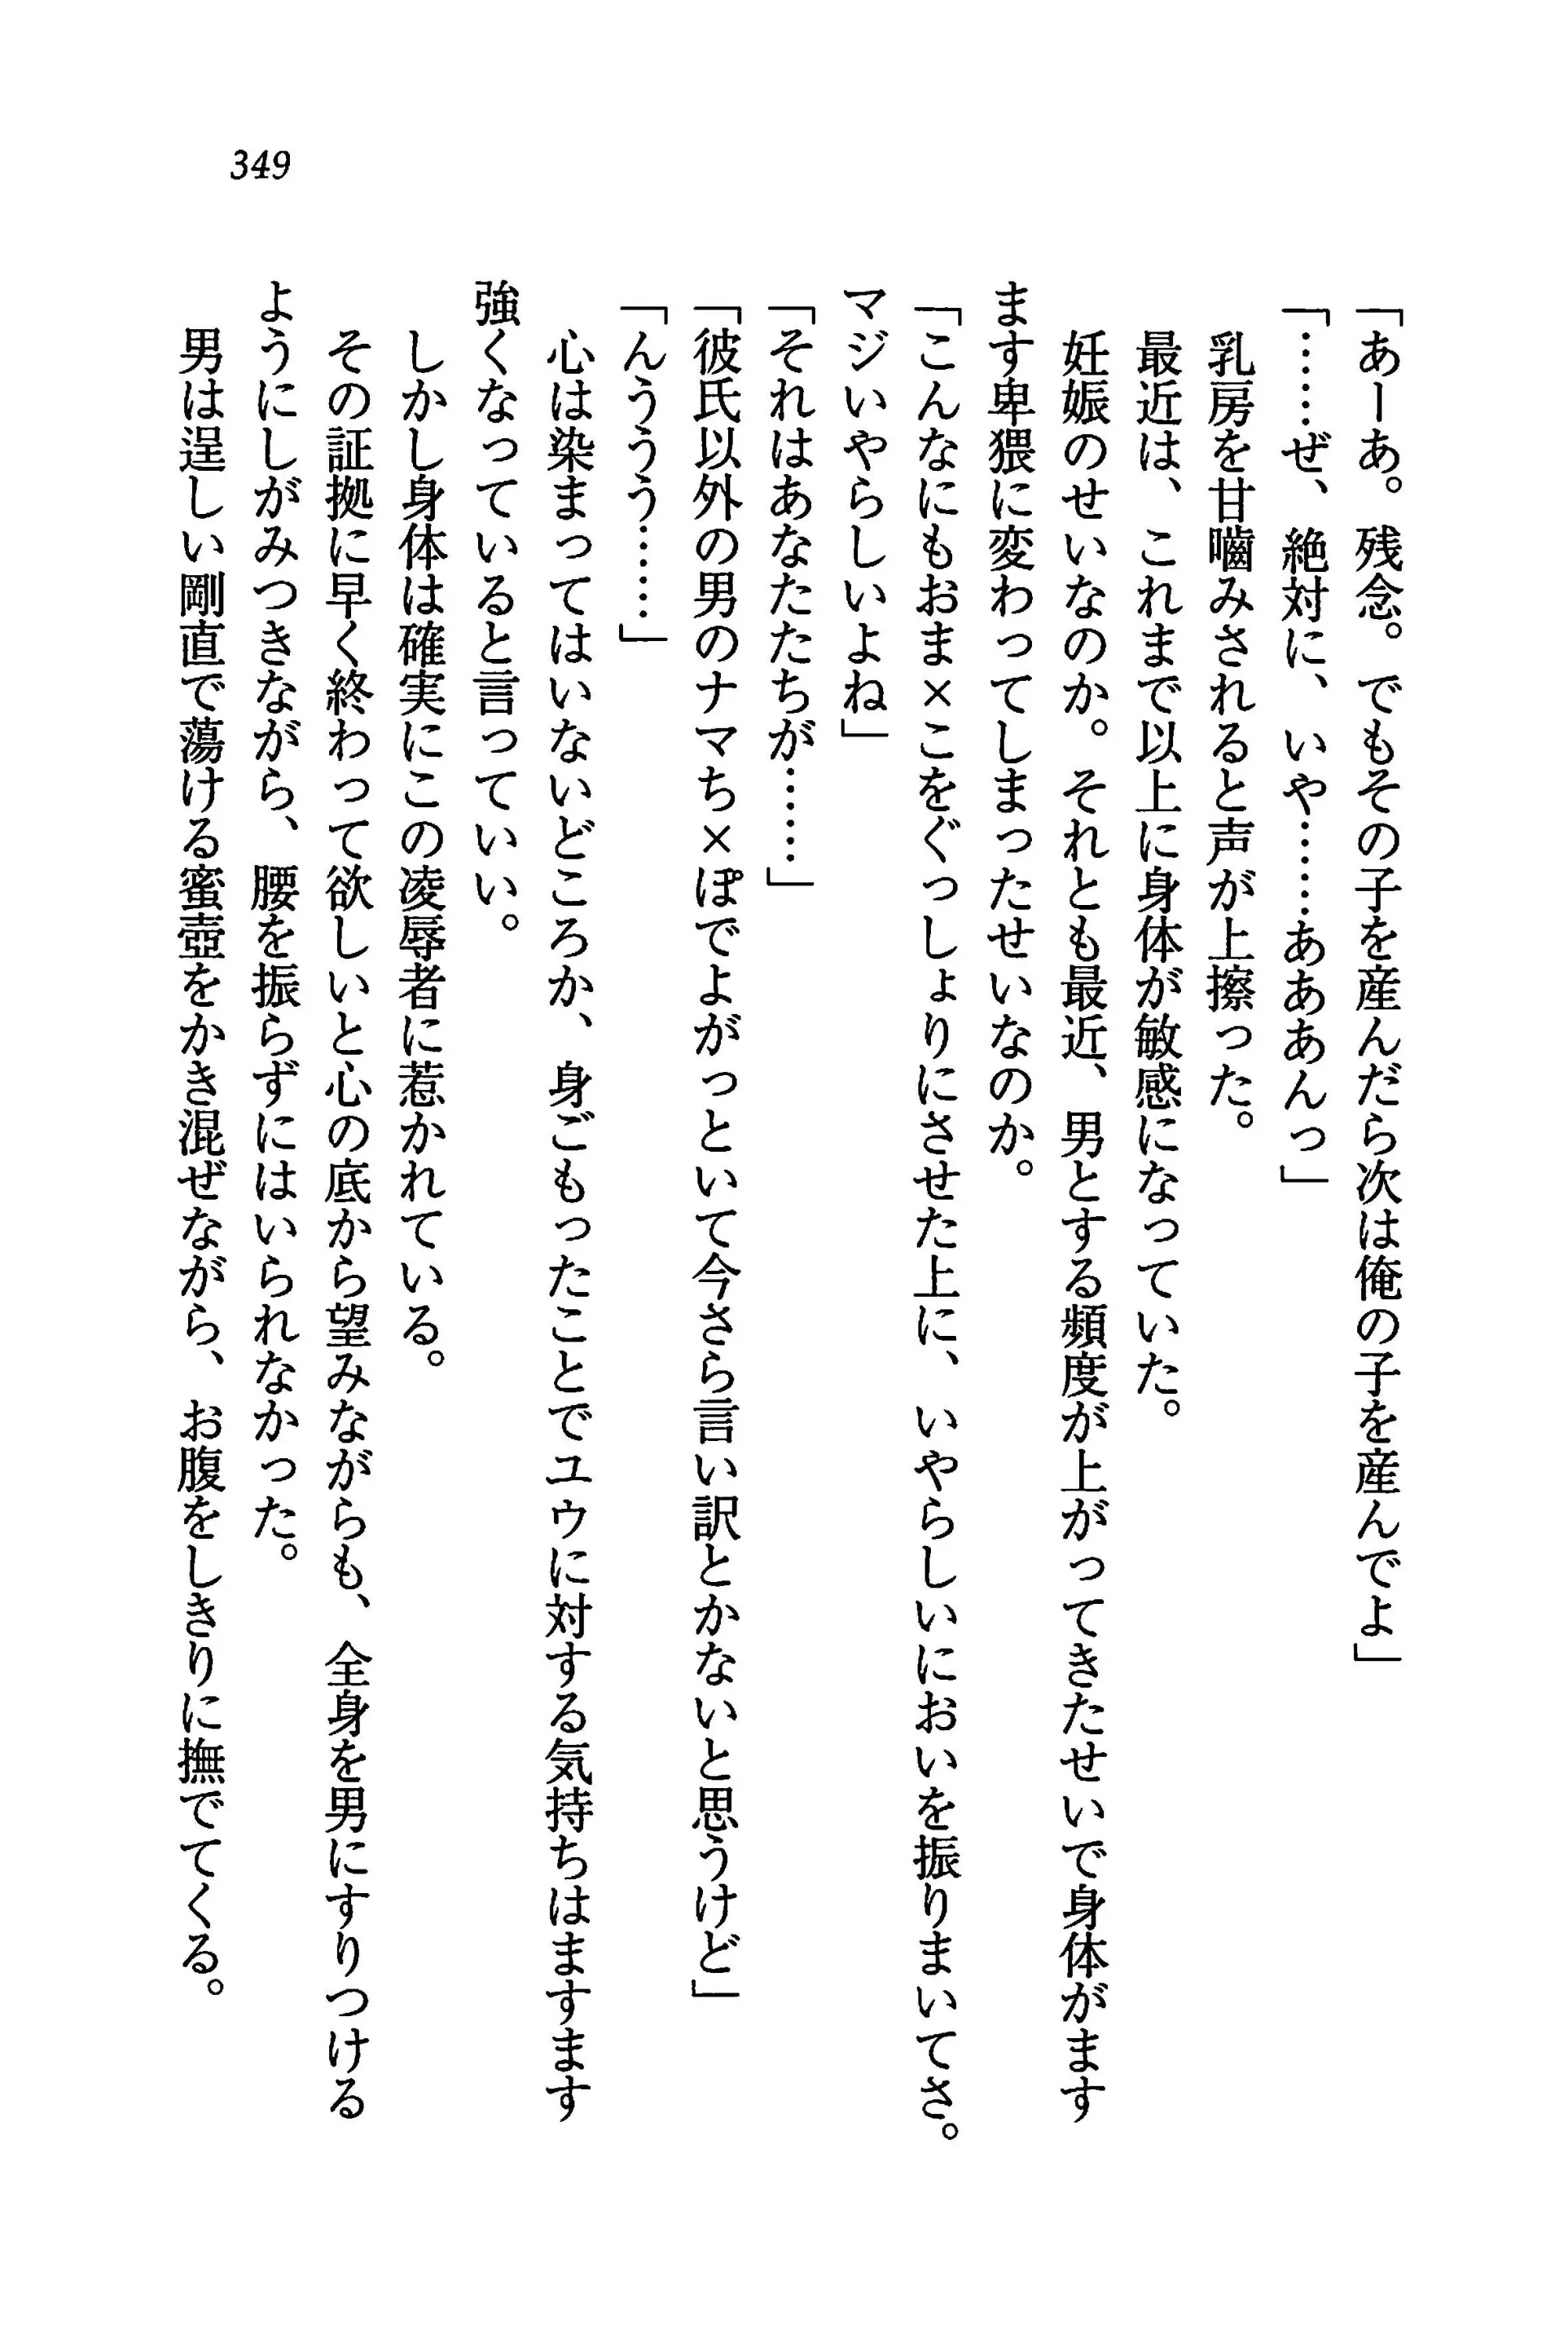 349
「あーあ。残念。でもその子を産んだら次は俺の子を産んでよ」
「……ぜ、絶対に、いや……あああんっ」
乳房を甘嚙みされると声が上擦った。
最近は、これまで以上に身体が敏感になっていた。
妊娠のせいなのか。それとも最近、男とする頻度が上がってきたせいで身体がます
ます卑猥に変わってしまったせいなのか。
「こんなにもおま×こをぐっしょりにさせた上に、いやらしいにおいを振りまいてさ。
マジいやらしいよね」
「それはあなたたちが……」
「彼氏以外の男のナマち×ぽでよがっといて今さら言い訳とかないと思うけど」
「んううう……」
心は染まってはいないどころか、身ごもったことでユウに対する気持ちはますます
強くなっていると言っていい。
しかし身体は確実にこの凌辱者に惹かれている。
その証拠に早く終わって欲しいと心の底から望みながらも、全身を男にすりつける
ようにしがみつきながら、腰を振らずにはいられなかった。
男は逞しい剛直で蕩ける蜜壺をかき混ぜながら、お腹をしきりに撫でてくる。